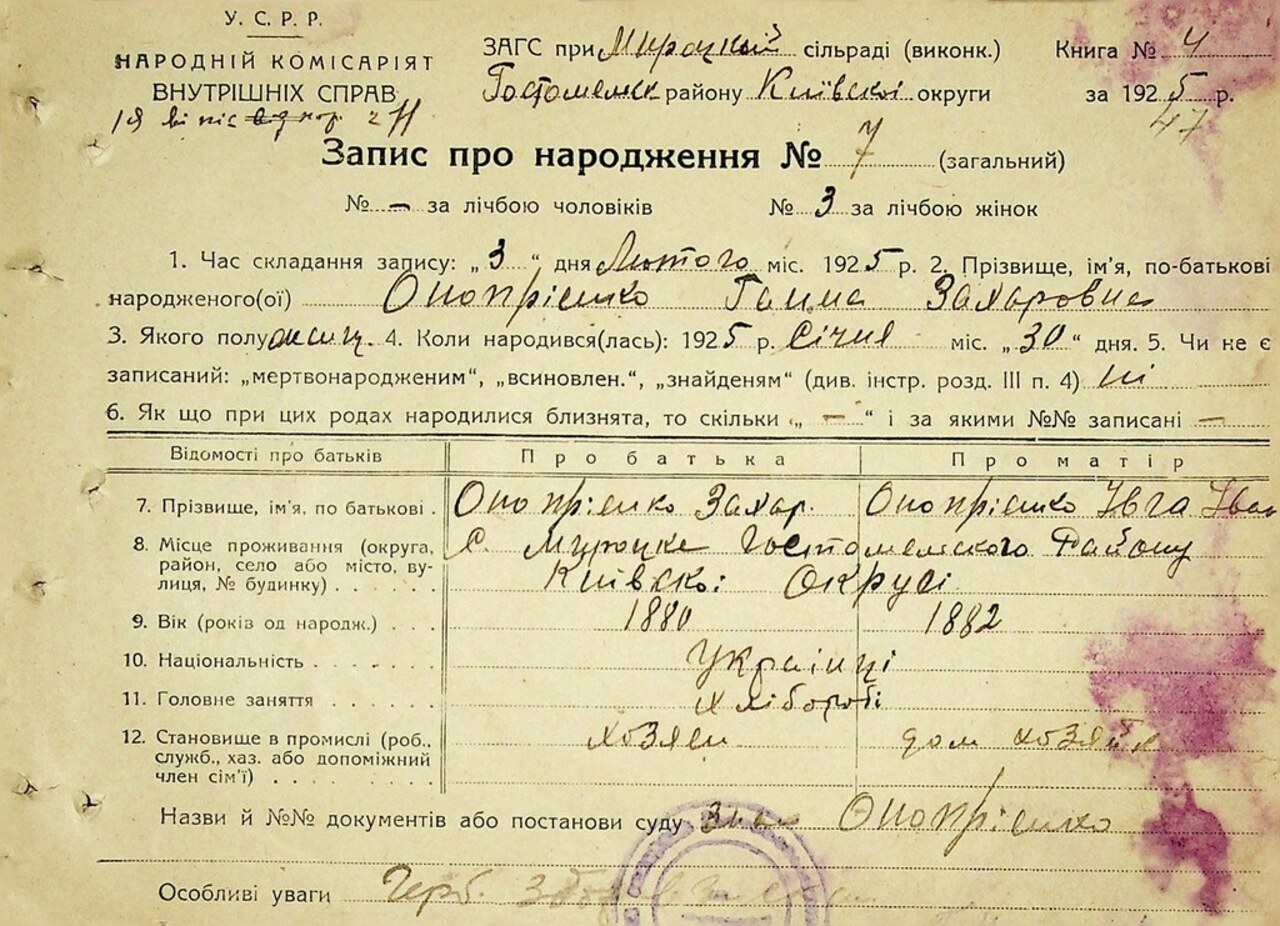 У. С. Р. Р.
НАРОДНІЙ КОМІСАРІЯТ
ВНУТРІШНІХ СПРАВ
ЗАГС при Мироцкой сільраді (виконк.) Книга № 4
Гостоменск району Київскоі округи за 1925 р.
47
Запис про народження № 7 (загальний)
№ – за лічбою чоловіків № 3 за лічбою жінок
1. Час складання запису: „3“ дня Лютого міс. 1925 р. 2. Прізвище, ім'я, по-батькові
народженого(ої) Оноприєнко Ганна Захаровна
3. Якого полу жіноц. 4. Коли народився(лась): 1925 р. Січня міс. „30“ дня. 5. Чи не є
записаний: „мертвонародженим“, „всиновлен.“, „знайденям“ (див. інстр. розд. III п. 4) ні
6. Як що при цих родах народилися близнята, то скільки „ – “ і за якими №№ записані –
Відомості про батьків Про батька Про матір
7. Прізвище, ім'я, по батькові . Онопрієнко Захар. Онопрієнко Івга Іван
8. Місце проживання (округа, район, село або місто, вулиця, № будинку) . . . . . . С. Мироцке Гостомелského Району
Київскоі Окрусі
9. Вік (років од народж.) . . . 1880 1882
10. Національність . . . . . . . Українці
11. Головне заняття . . . . . . Хлібороби
12. Становище в промислі (роб., служб., хаз. або допоміжний член сім'ї) . . . . . . . . . хозяен дом хозяйка
Назви й №№ документів або постанови суду Онопрієнко
Особливі уваги Герб.